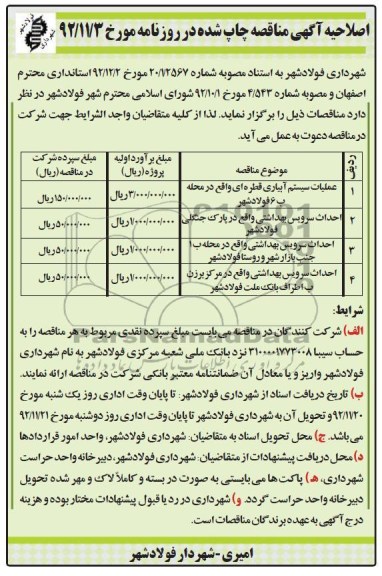 اصلاحیه آگهی مناقصه چاپ شده در روزنامه مورخ ۹۲/۱۱/۳
شهرداری فولادشهر به استناد مصوبه شماره ۲۰/۱۳۵۶۷ مورخ ۹۲/۱۲/۲ استانداری محترم
اصفهان و مصوبه شماره ۴/۵۴۳ مورخ ۹۲/۱۰/۱ شورای اسلامی محترم شهر فولادشهر در نظر
دارد مناقصات ذیل را برگزار نماید. لذا از کلیه متقاضیان واجد الشرایط جهت شرکت
در مناقصه دعوت به عمل می آید.
ردیف موضوع مناقصه مبلغ برآورد اولیه پروژه (ریال) مبلغ سپرده شرکت در مناقصه (ریال)
۱ عملیات سیستم آبیاری قطره ای واقع در محله ب ۶ فولادشهر ۳/۰۰۰/۰۰۰/۰۰۰ ریال ۱۵۰/۰۰۰/۰۰۰ ریال
۲ احداث سرویس بهداشتی واقع در پارک جنگلی فولادشهر ۱/۰۰۰/۰۰۰/۰۰۰ ریال ۵۰/۰۰۰/۰۰۰ ریال
۳ احداث سرویس بهداشتی واقع در محله ب ۱ جنب بازار شهر و روستا فولادشهر ۱/۰۰۰/۰۰۰/۰۰۰ ریال ۵۰/۰۰۰/۰۰۰ ریال
۴ احداث سرویس بهداشتی واقع در مرکز برزن ب اطراف بانک ملت فولادشهر ۱/۰۰۰/۰۰۰/۰۰۰ ریال ۵۰/۰۰۰/۰۰۰ ریال
شرایط:
الف) شرکت کنندگان در مناقصه می بایست مبلغ سپرده نقدی مربوط به هر مناقصه را به
حساب سیبا ۳۱۰۰۰۰۱۷۷۳۰۰۸ نزد بانک ملی شعبه مرکزی فولادشهر به نام شهرداری
فولادشهر واریز و یا معادل آن ضمانتنامه معتبر بانکی شرکت در مناقصه ارائه نمایند.
ب) تاریخ دریافت اسناد از شهرداری فولادشهر: تا پایان وقت اداری روز یک شنبه مورخ
۹۲/۱۱/۲۰ و تحویل آن به شهرداری فولادشهر تا پایان وقت اداری روز دوشنبه مورخ ۹۲/۱۱/۲۱
می باشد. ج) محل تحویل اسناد به متقاضیان: شهرداری فولادشهر، واحد امور قراردادها
د) محل دریافت پیشنهادات از متقاضیان: شهرداری فولادشهر، دبیرخانه واحد حراست
شهرداری، هـ) پاکت ها می بایستی به صورت در بسته و کاملاً لاک و مهر شده تحویل
دبیرخانه واحد حراست گردد. و) شهرداری در رد یا قبول پیشنهادات مختار بوده و هزینه
درج آگهی به عهده برندگان مناقصات است.
امیری - شهردار فولادشهر